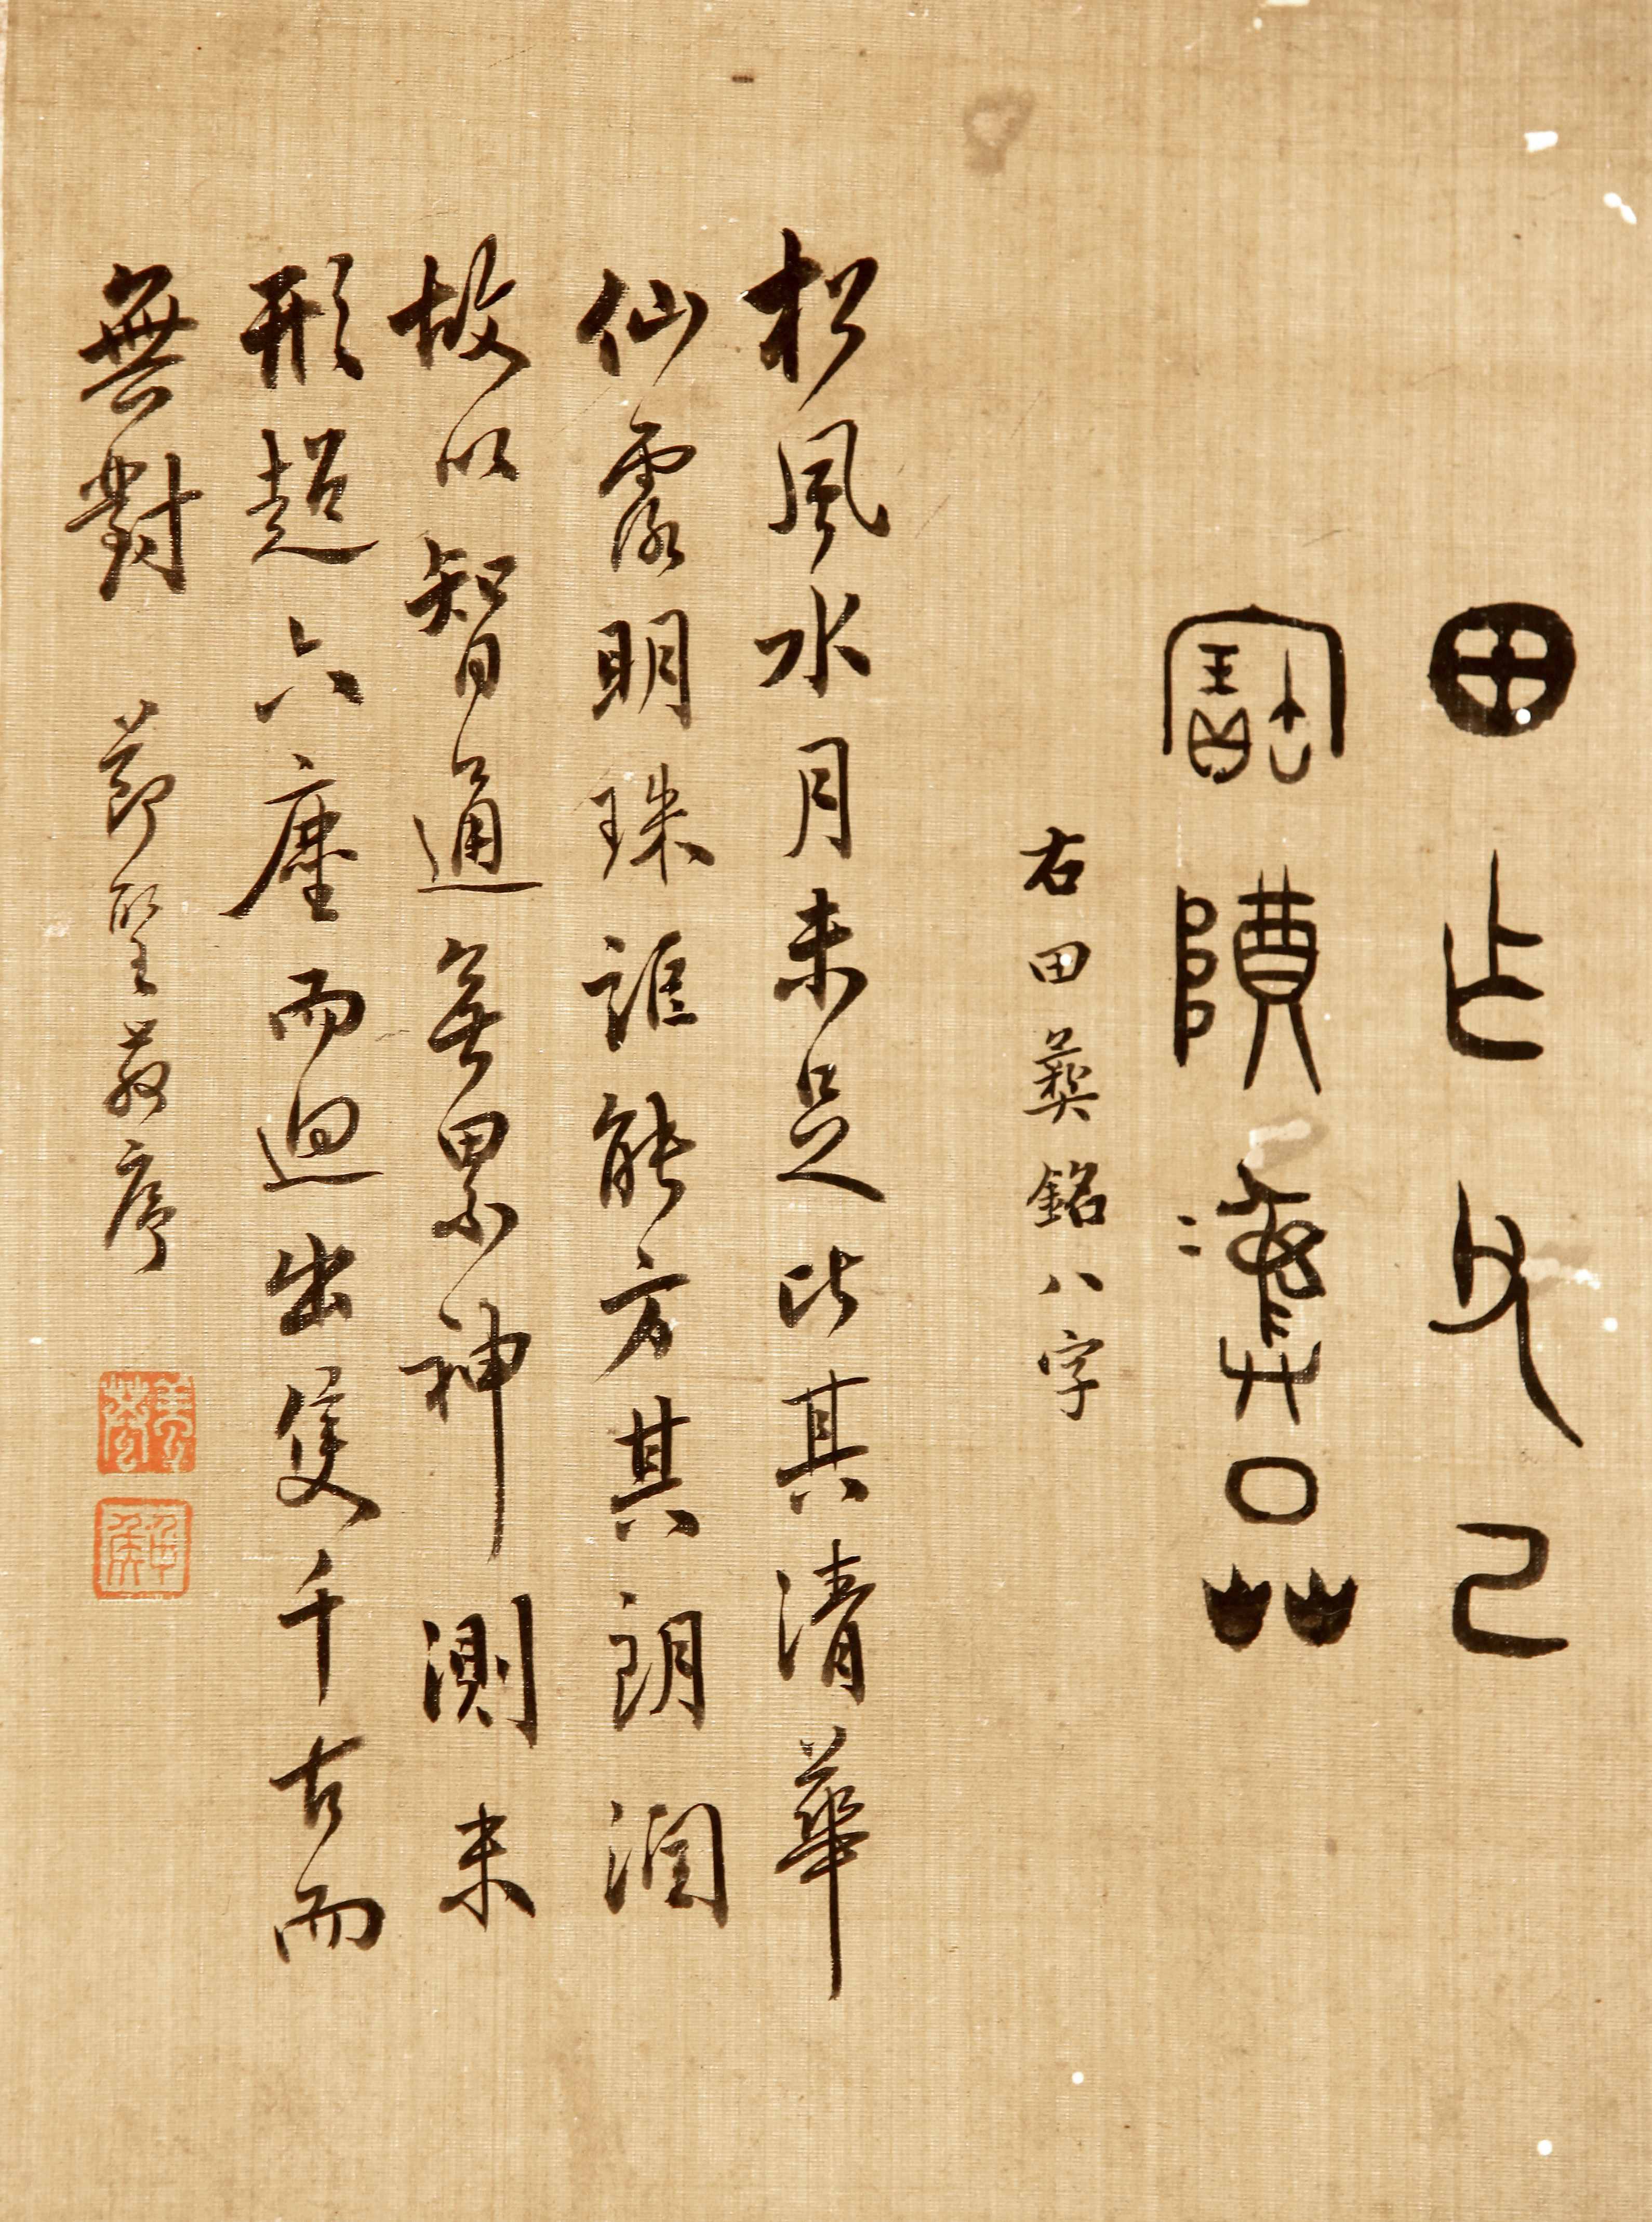 田乍父己
寶䵼彝
右田彝銘八字
松風水月未足比其清華
仙露明珠詎能方其朗潤
故以智通無累神測未
形超六塵而迥出隻千古而
無對　節聖教序